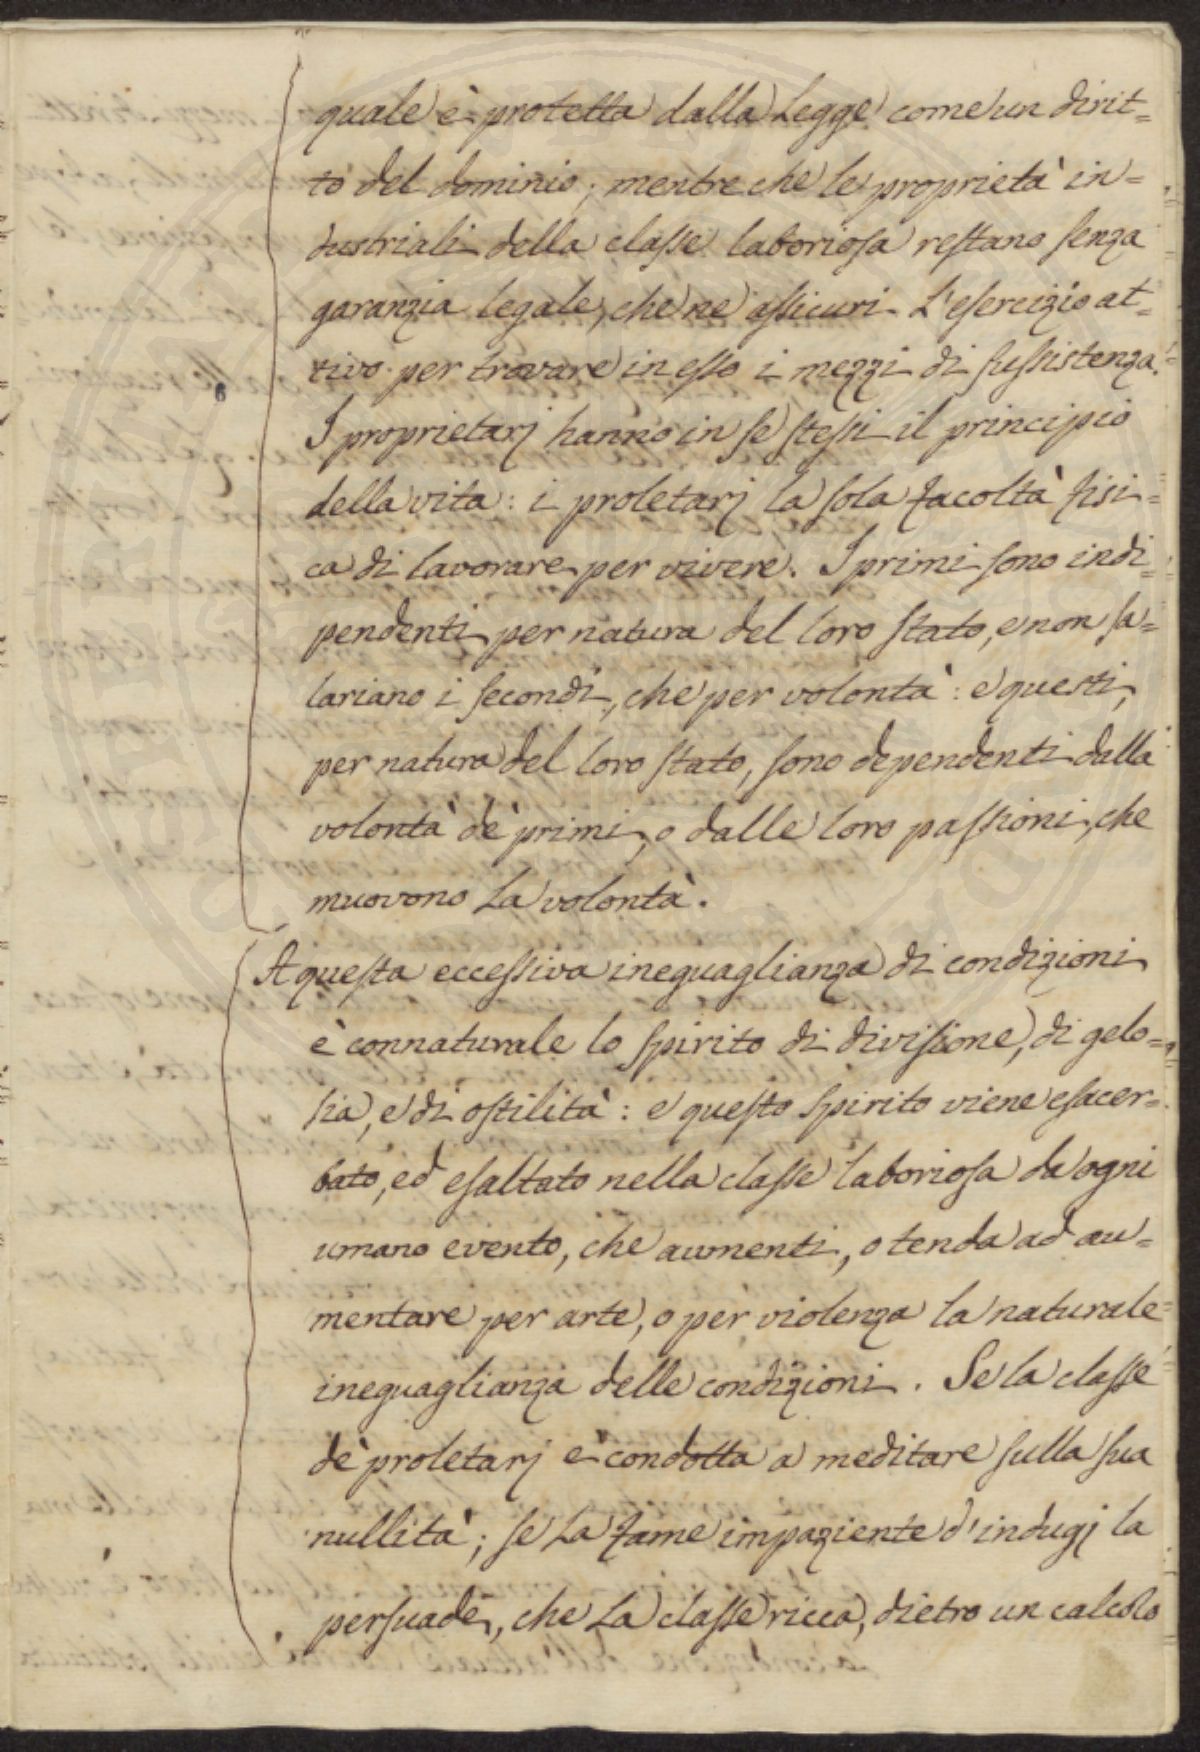 quale è protetta dalla Legge come un dirit=
to del dominio; mentre che le proprietà in=
dustriali della classe laboriosa restano senza
garanzia legale, che ne assicuri L'esercizio at=
tivo per trovare in esso i mezzi di sussistenza.
I proprietarj hanno in se stessi il principio
della vita: i proletarj la sola facoltà fisi=
ca di lavorare per vivere. I primi sono indi=
pendenti per natura del loro stato, e non sa=
lariano i secondi, che per volontà: e questi,
per natura del loro stato, sono dependenti dalla
volontà de' primi, o dalle loro passioni, che
muovono La volontà.
A questa eccessiva ineguaglianza di condizioni
è connaturale lo spirito di divisione, di gelo=
sia, e di ostilità: e questo spirito viene esacer=
bato, ed esaltato nella classe laboriosa da ogni
umano evento, che aumenti, o tenda ad au=
mentare per arte, o per violenza la naturale
ineguaglianza delle condizioni. Se la classe
de' proletarj è condotta a meditare sulla sua
nullità; se La fame impaziente d'indugj la
persuade, che La classe ricca, dietro un calcolo